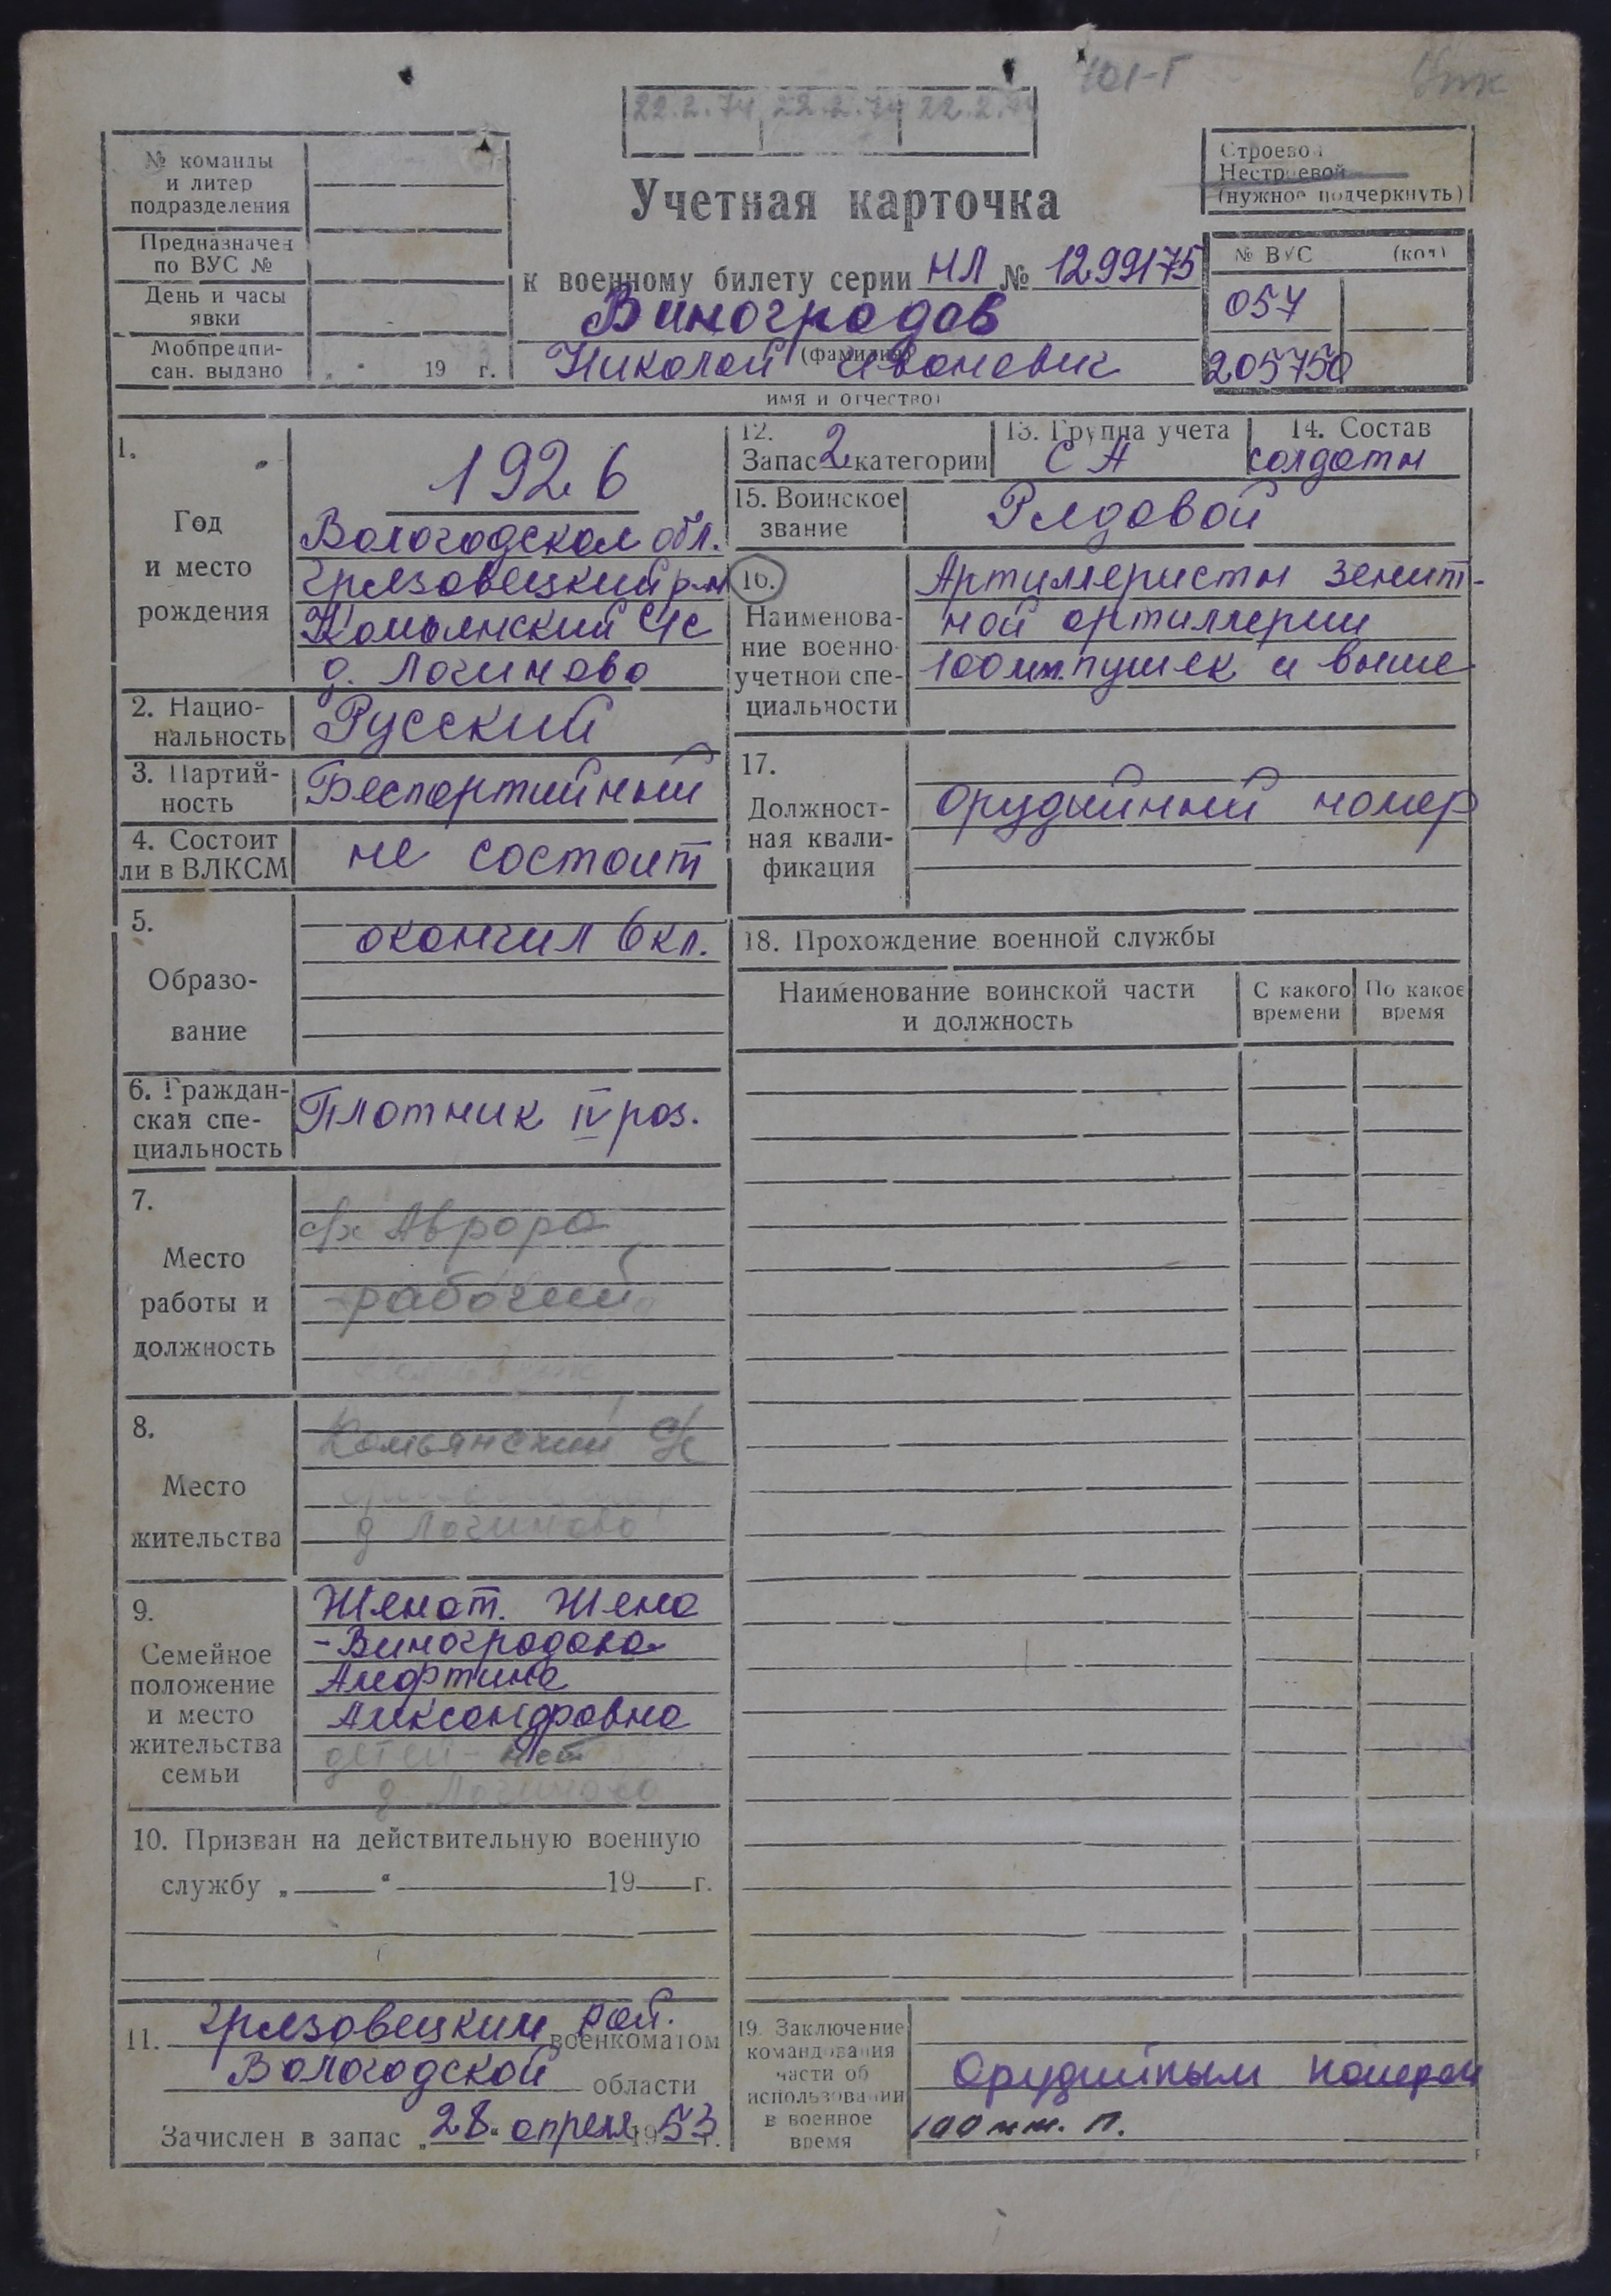 101-Г
22.2.74 22.2.74 22.2.74
№ команды
и литер
подразделения
Предназначен
по ВУС №
День и часы
явки
Мобпредпи-
сан. выдано
19 г.
Учетная карточка
к военному билету серии НЛ № 1299175
Виноградов
(фамилия)
Николай Иванович
имя и отчество)
Строевой
Нестроевой
(нужное подчеркнуть)
№ ВУС (код)
057
205750
1.
Год
и место
рождения
1926
Вологодская обл.
Грязовецкий р-н
Комьянский с/с
д. Логиново
2. Нацио-
нальность
Русский
3. Партий-
ность
Беспартийный
4. Состоит
ли в ВЛКСМ
не состоит
5.
Образо-
вание
окончил 6 кл.
6. Граждан-
ская спе-
циальность
Плотник IV раз.
7.
Место
работы и
должность
с/х Аврора
рабочий
8.
Место
жительства
Комьянский с/с
д Логиново
9.
Семейное
положение
и место
жительства
семьи
Женат. Жена
- Виноградова
Алефтина
Александровна
детей - нет
д. Логиново
10. Призван на действительную военную
службу „ “ 19 г.
11. Грязовецким рай. военкоматом
Вологодской области
Зачислен в запас „28“ апреля 1953 г.
12.
Запас 2 категории
13. Группа учета
СА
14. Состав
солдаты
15. Воинское
звание
Рядовой
16.
Наименова-
ние военно-
учетной спе-
циальности
Артиллеристы зенит-
ной артиллерии
100 мм. пушек и выше
17.
Должност-
ная квали-
фикация
орудийный номер
18. Прохождение военной службы
Наименование воинской части
и должность
С какого
времени
По какое
время
19. Заключение
командования
части об
использовании
в военное
время
Орудийным номером
100 мм. п.